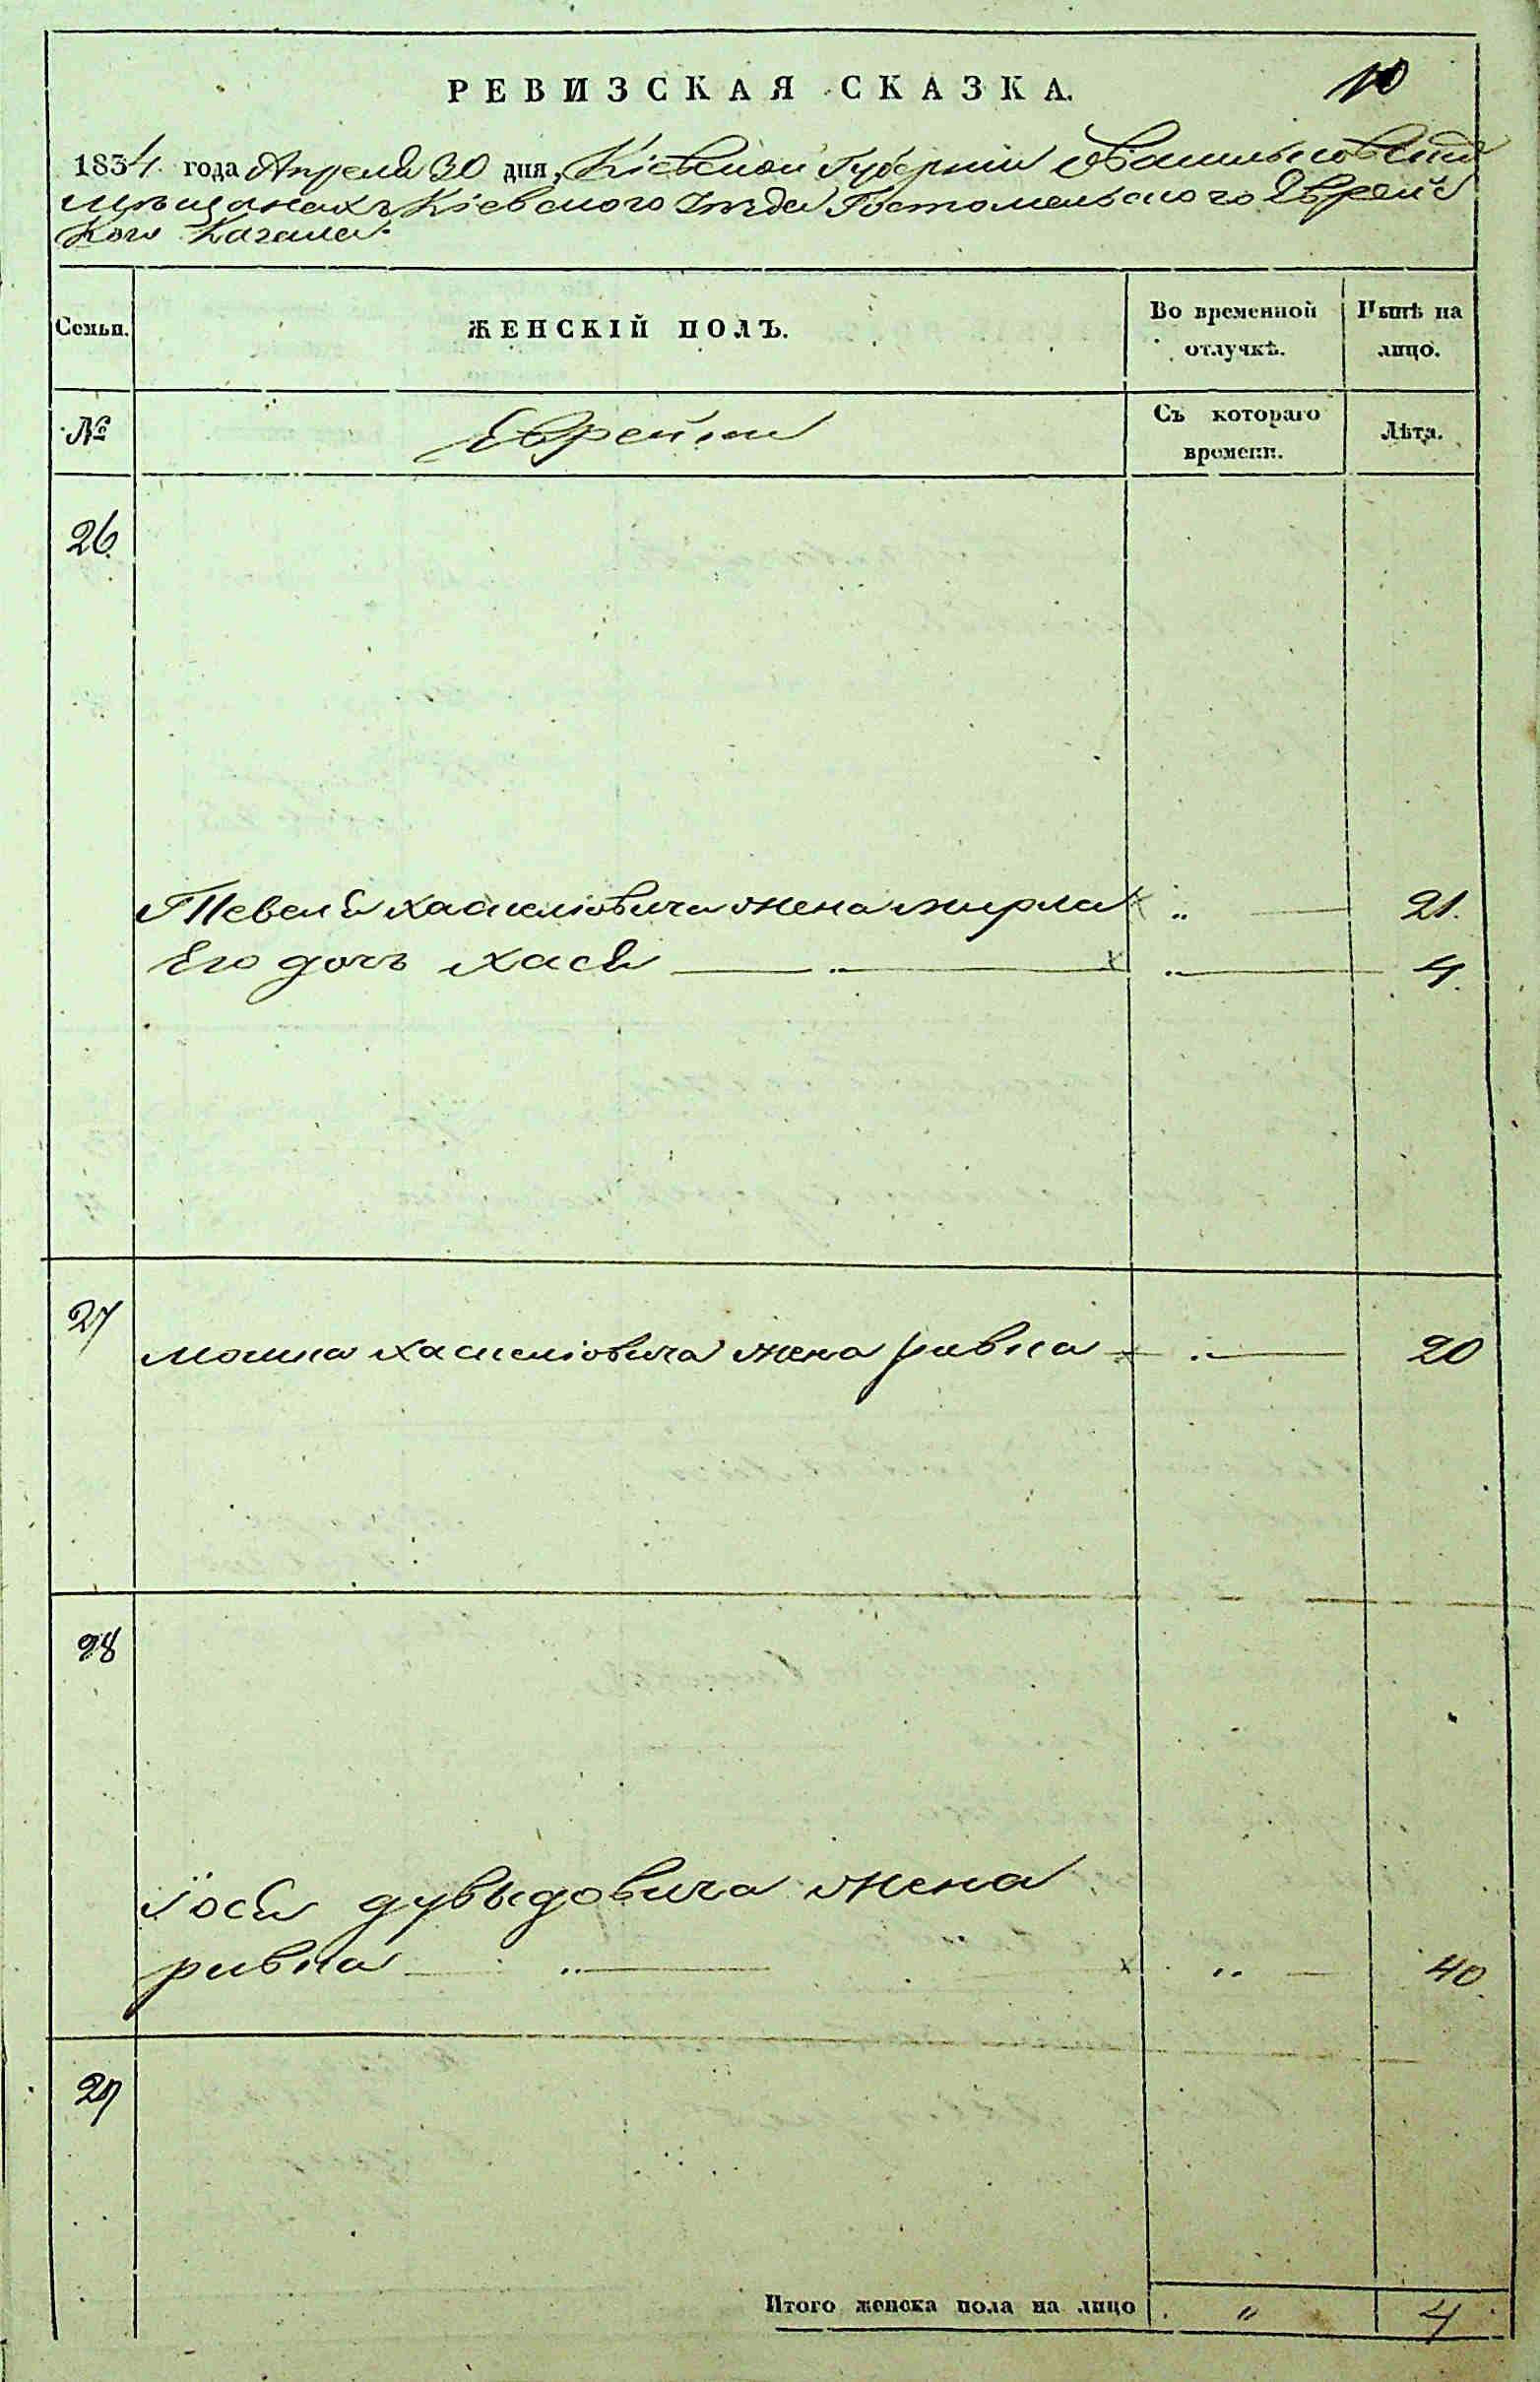 РЕВИЗСКАЯ СКАЗКА.
10
1834 года Апреля 30 дня, Кіевской Губерніи Васильковский
мѣщанахъ Кіевского Уѣзда Гостомельского Еврейс
кого Кагала.
Семьи.
ЖЕНСКІЙ ПОЛЪ.
Во временной отлучкѣ.
Нынѣ на лицо.
№
Еврейки
Съ котораго времени.
Лѣта.
26.
Тевеля Хаскелювича жена мирла х „ 21.
Его дочь Хася „ х „ 4.
27
Мошка Хаскелювича жена ривка х „ 20
28
Іося дувыдовича жена
ривка „ х „ 40.
29
Итого женска пола на лицо „ 4